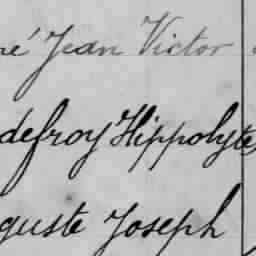 né Jean Victor
defroy Hippolyte
guste Joseph